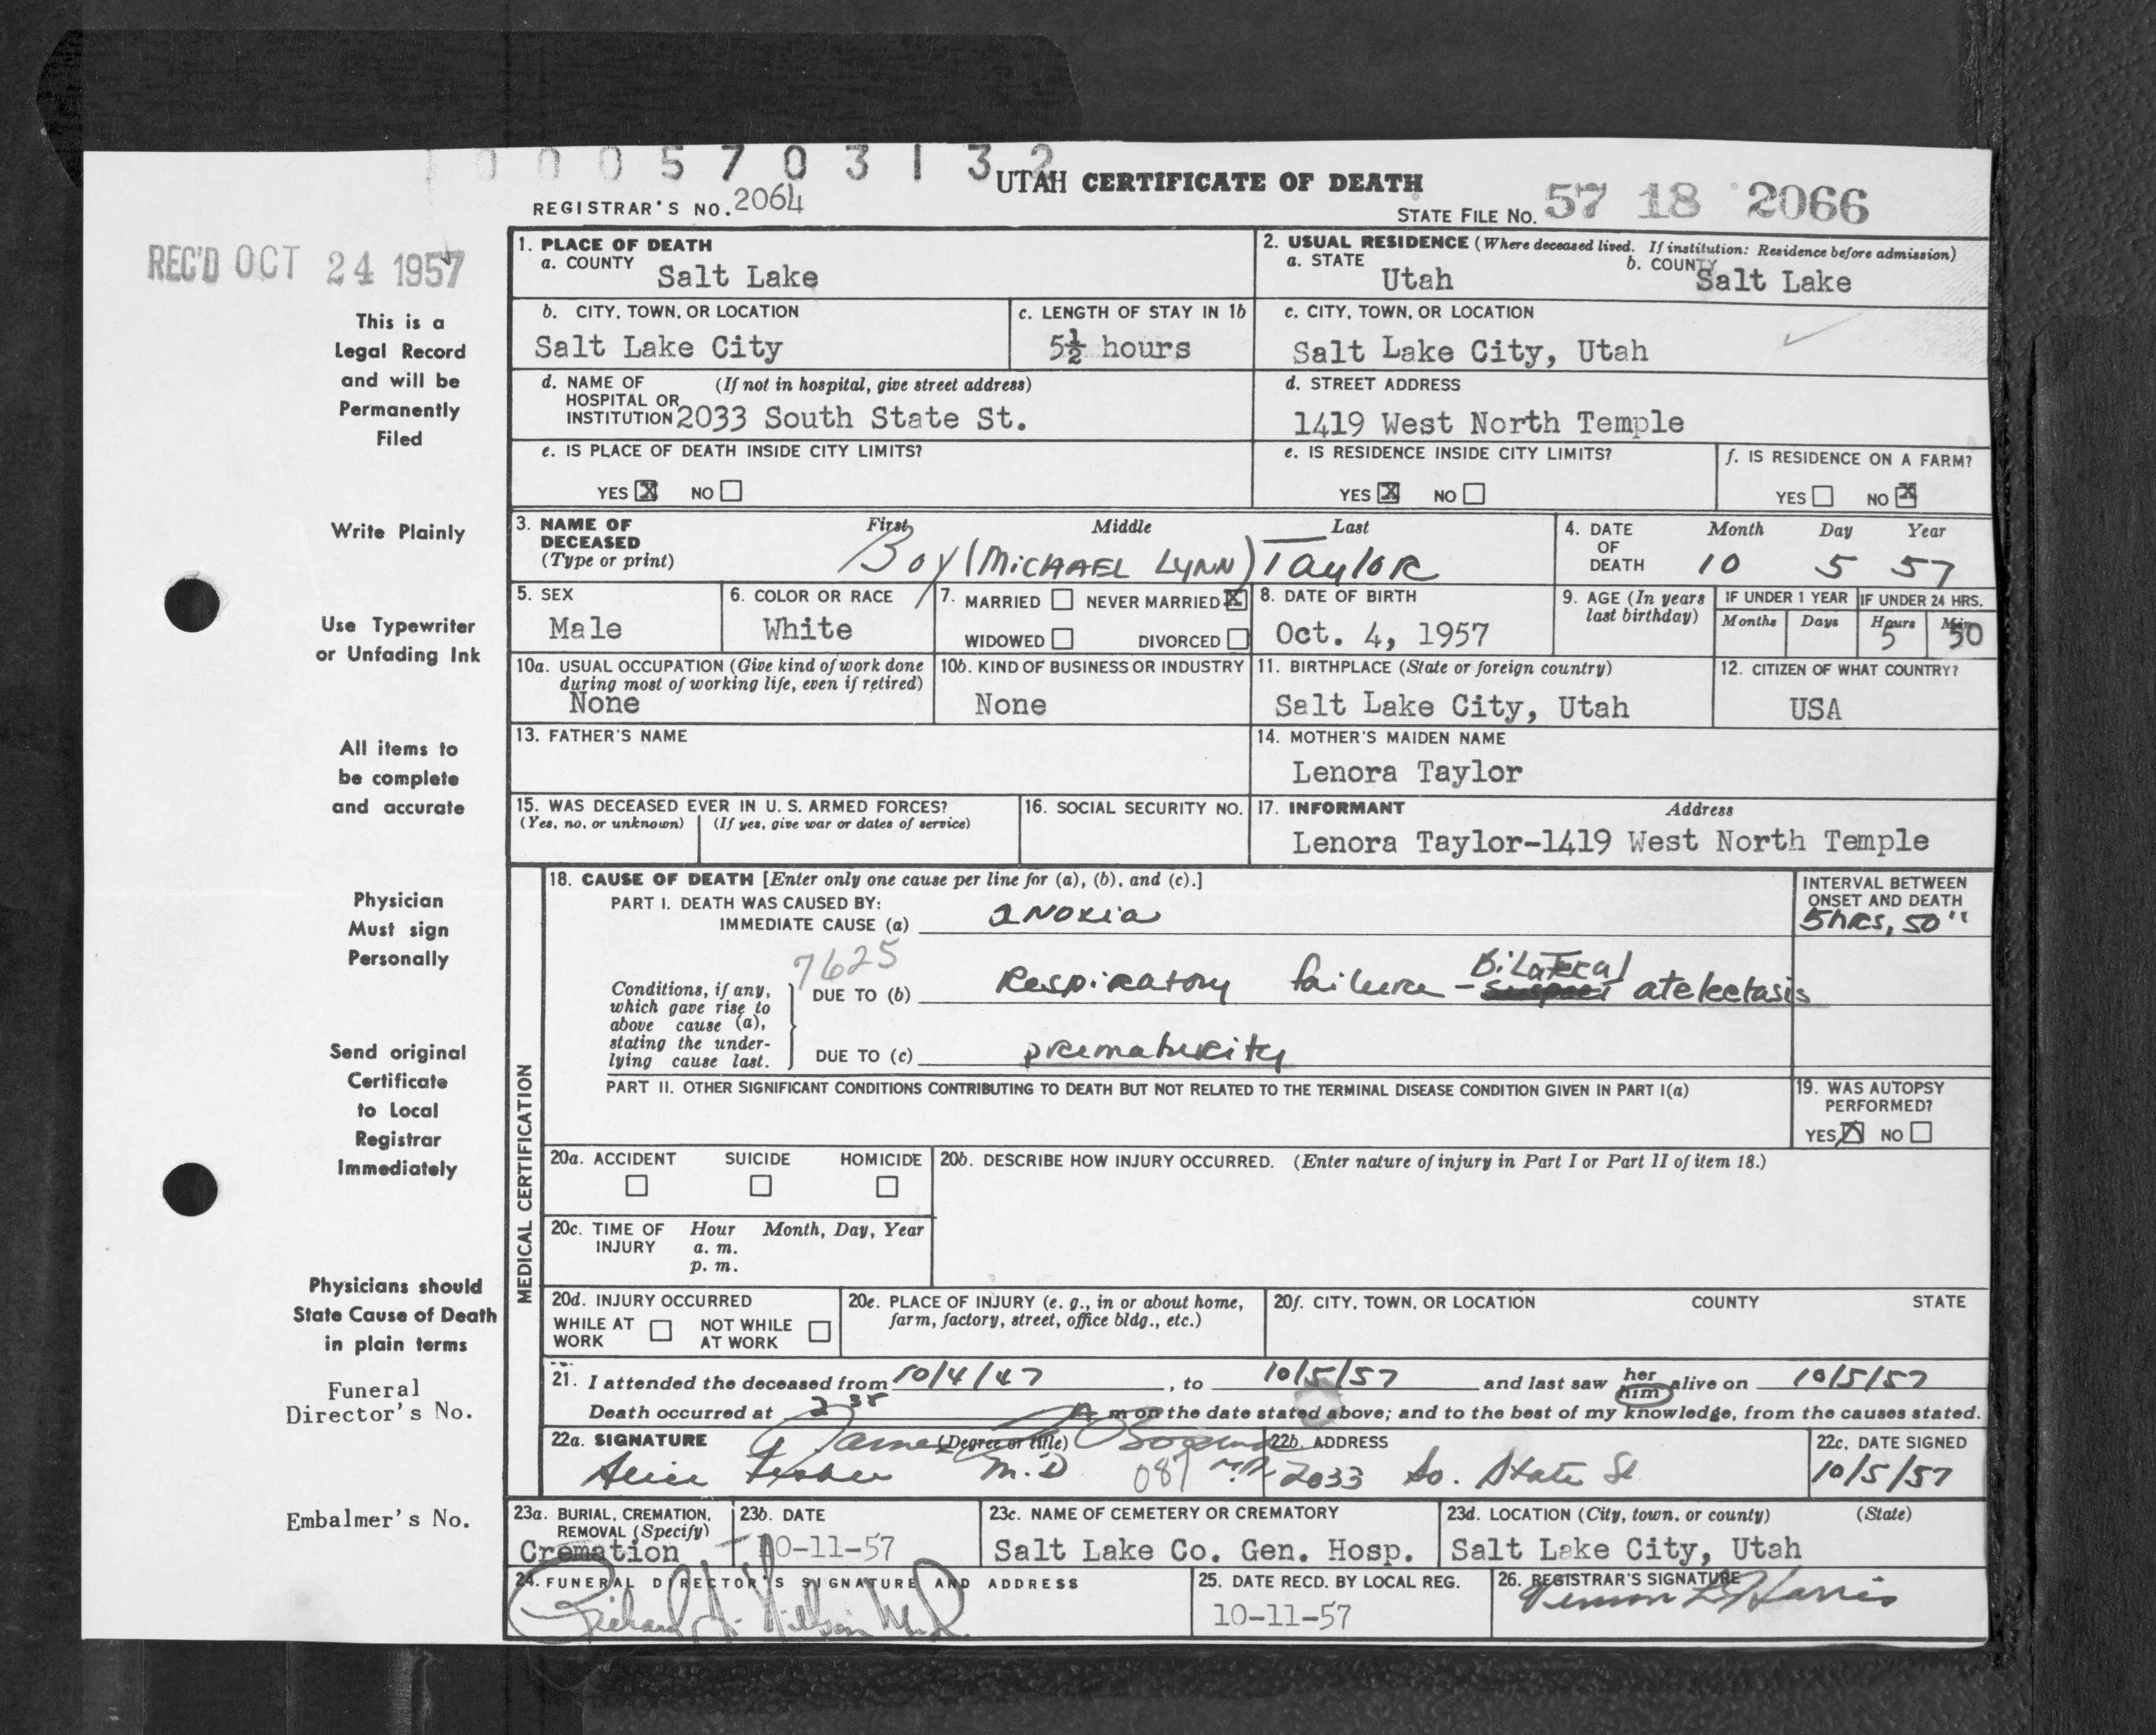 0 0 0 5 7 0 3 1 3 2
UTAH CERTIFICATE OF DEATH
REGISTRAR'S NO. 2064
STATE FILE NO. 57 18 2066
REC'D OCT 24 1957
This is a
Legal Record
and will be
Permanently
Filed
Write Plainly
Use Typewriter
or Unfading Ink
All items to
be complete
and accurate
Physician
Must sign
Personally
Send original
Certificate
to Local
Registrar
Immediately
Physicians should
State Cause of Death
in plain terms
Funeral
Director's No.
Embalmer's No.
1. PLACE OF DEATH
a. COUNTY Salt Lake
2. USUAL RESIDENCE (Where deceased lived. If institution: Residence before admission)
a. STATE Utah b. COUNTY Salt Lake
b. CITY, TOWN, OR LOCATION
Salt Lake City
c. LENGTH OF STAY IN 1b
5½ hours
c. CITY, TOWN, OR LOCATION
Salt Lake City, Utah
d. NAME OF (If not in hospital, give street address)
HOSPITAL OR
INSTITUTION 2033 South State St.
d. STREET ADDRESS
1419 West North Temple
e. IS PLACE OF DEATH INSIDE CITY LIMITS?
YES X NO
e. IS RESIDENCE INSIDE CITY LIMITS?
YES X NO
f. IS RESIDENCE ON A FARM?
YES NO X
3. NAME OF First Middle Last
DECEASED
(Type or print) Boy (MICHAEL LYNN) Taylor
4. DATE Month Day Year
OF
DEATH 10 5 57
5. SEX
Male
6. COLOR OR RACE
White
7. MARRIED NEVER MARRIED X
WIDOWED DIVORCED
8. DATE OF BIRTH
Oct. 4, 1957
9. AGE (In years
last birthday)
IF UNDER 1 YEAR
Months Days
IF UNDER 24 HRS.
Hours Min
5 50
10a. USUAL OCCUPATION (Give kind of work done
during most of working life, even if retired)
None
10b. KIND OF BUSINESS OR INDUSTRY
None
11. BIRTHPLACE (State or foreign country)
Salt Lake City, Utah
12. CITIZEN OF WHAT COUNTRY?
USA
13. FATHER'S NAME
14. MOTHER'S MAIDEN NAME
Lenora Taylor
15. WAS DECEASED EVER IN U. S. ARMED FORCES?
(Yes, no, or unknown) (If yes, give war or dates of service)
16. SOCIAL SECURITY NO.
17. INFORMANT Address
Lenora Taylor-1419 West North Temple
MEDICAL CERTIFICATION
18. CAUSE OF DEATH [Enter only one cause per line for (a), (b), and (c).]
PART I. DEATH WAS CAUSED BY:
IMMEDIATE CAUSE (a) anoxia
INTERVAL BETWEEN
ONSET AND DEATH
5 hrs, 50"
7625
Conditions, if any,
which gave rise to
above cause (a),
stating the under-
lying cause last.
DUE TO (b) Respiratory failure - Bilateral atelectasis
DUE TO (c) prematurity
PART II. OTHER SIGNIFICANT CONDITIONS CONTRIBUTING TO DEATH BUT NOT RELATED TO THE TERMINAL DISEASE CONDITION GIVEN IN PART I(a)
19. WAS AUTOPSY
PERFORMED?
YES X NO
20a. ACCIDENT SUICIDE HOMICIDE
20b. DESCRIBE HOW INJURY OCCURRED. (Enter nature of injury in Part I or Part II of item 18.)
20c. TIME OF Hour Month, Day, Year
INJURY a. m.
p. m.
20d. INJURY OCCURRED
WHILE AT NOT WHILE
WORK AT WORK
20e. PLACE OF INJURY (e. g., in or about home,
farm, factory, street, office bldg., etc.)
20f. CITY, TOWN, OR LOCATION COUNTY STATE
21. I attended the deceased from 10/4/47, to 10/5/57 and last saw her him alive on 10/5/57
Death occurred at 2 35 A m on the date stated above; and to the best of my knowledge, from the causes stated.
22a. SIGNATURE (Degree or title) James
Alice M.D 087 M.D.
22b. ADDRESS
2033 So. State St
22c. DATE SIGNED
10/5/57
23a. BURIAL, CREMATION,
REMOVAL (Specify)
Cremation
23b. DATE
10-11-57
23c. NAME OF CEMETERY OR CREMATORY
Salt Lake Co. Gen. Hosp.
23d. LOCATION (City, town, or county) (State)
Salt Lake City, Utah
24. FUNERAL DIRECTOR'S SIGNATURE AND ADDRESS
Richard
25. DATE RECD. BY LOCAL REG.
10-11-57
26. REGISTRAR'S SIGNATURE
Vernon L Harris